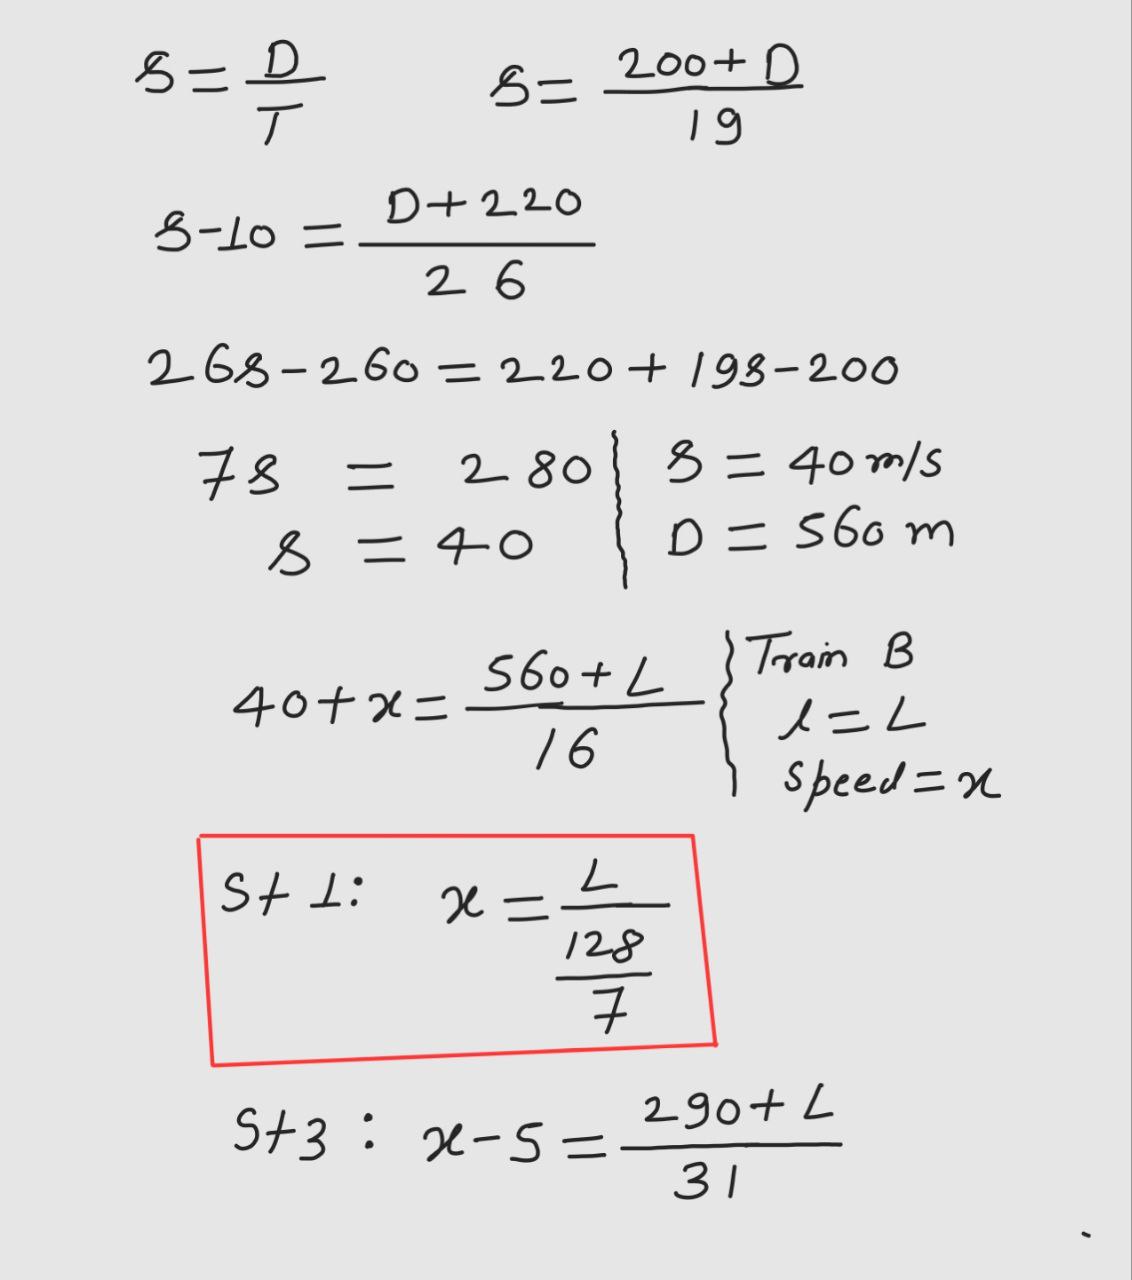 S = D/T    S = (200 + D)/19
S - 10 = (D + 220)/26
26S - 260 = 220 + 19S - 200
7S = 280    S = 40 m/s
S = 40    D = 560 m
40 + x = (560 + L)/16    Train B
l = L
Speed = x
St 1: x = L/(128/7)
St 3 : x - 5 = (290 + L)/31